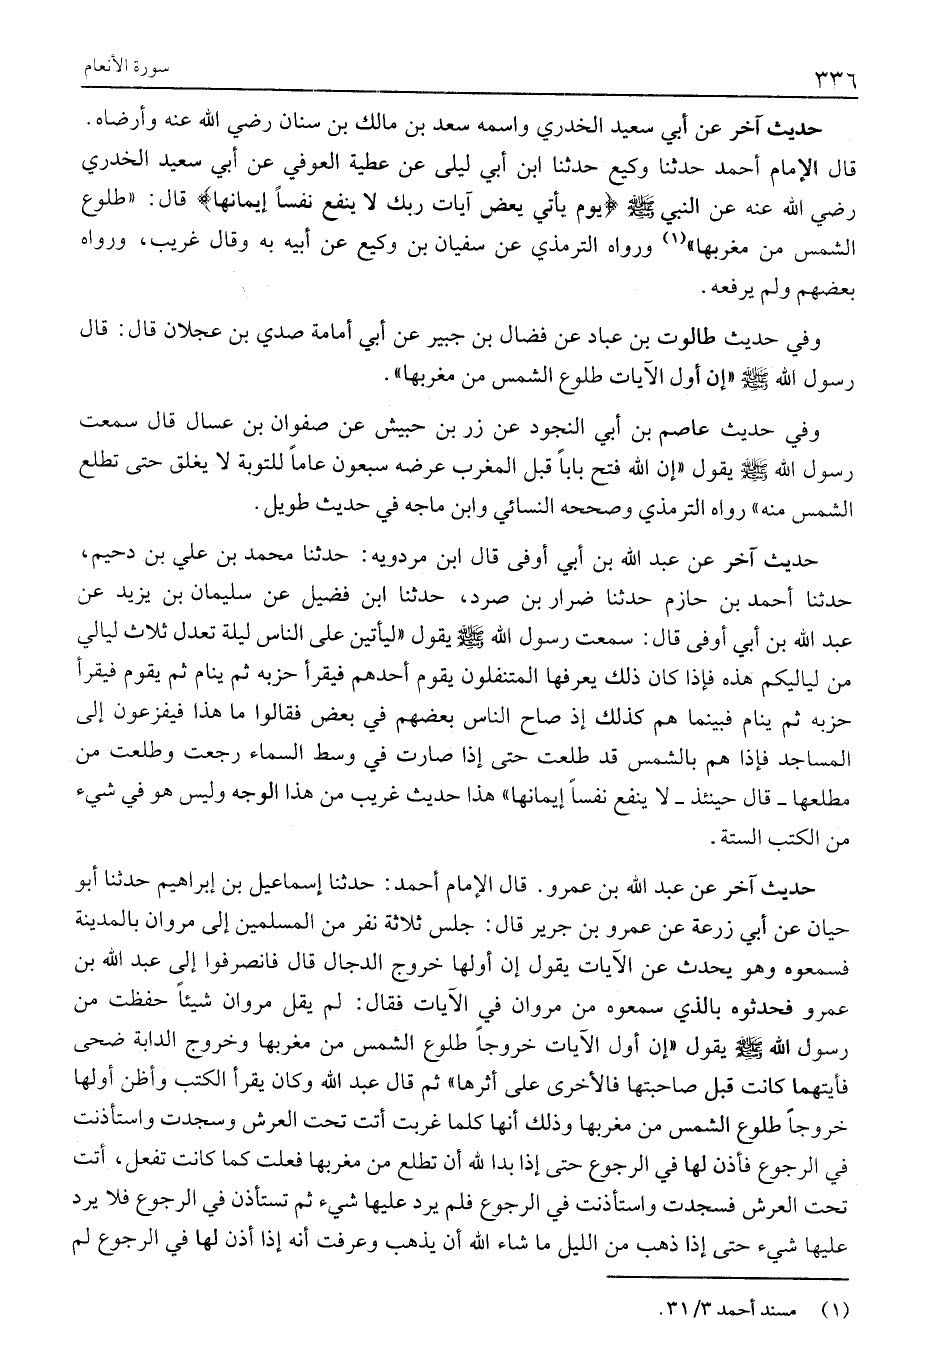 ٣٣٦ سورة الأنعام
حديث آخر عن أبي سعيد الخدري واسمه سعد بن مالك بن سنان رضي الله عنه وأرضاه.
قال الإمام أحمد حدثنا وكيع حدثنا ابن أبي ليلى عن عطية العوفي عن أبي سعيد الخدري
رضي الله عنه عن النبي ﷺ ﴿يوم يأتي بعض آيات ربك لا ينفع نفساً إيمانها﴾ قال: «طلوع
الشمس من مغربها»(١) ورواه الترمذي عن سفيان بن وكيع عن أبيه به وقال غريب، ورواه
بعضهم ولم يرفعه.
وفي حديث طالوت بن عباد عن فضال بن جبير عن أبي أمامة صدي بن عجلان قال: قال
رسول الله ﷺ «إن أول الآيات طلوع الشمس من مغربها».
وفي حديث عاصم بن أبي النجود عن زر بن حبيش عن صفوان بن عسال قال سمعت
رسول الله ﷺ يقول «إن الله فتح باباً قبل المغرب عرضه سبعون عاماً للتوبة لا يغلق حتى تطلع
الشمس منه» رواه الترمذي وصححه النسائي وابن ماجه في حديث طويل.
حديث آخر عن عبد الله بن أبي أوفى قال ابن مردويه: حدثنا محمد بن علي بن دحيم،
حدثنا أحمد بن حازم حدثنا ضرار بن صرد، حدثنا ابن فضيل عن سليمان بن يزيد عن
عبد الله بن أبي أوفى قال: سمعت رسول الله ﷺ يقول «ليأتين على الناس ليلة تعدل ثلاث ليالي
من لياليكم هذه فإذا كان ذلك يعرفها المتنفلون يقوم أحدهم فيقرأ حزبه ثم ينام ثم يقوم فيقرأ
حزبه ثم ينام فبينما هم كذلك إذ صاح الناس بعضهم في بعض فقالوا ما هذا فيفزعون إلى
المساجد فإذا هم بالشمس قد طلعت حتى إذا صارت في وسط السماء رجعت وطلعت من
مطلعها ـ قال حينئذ ـ لا ينفع نفساً إيمانها» هذا حديث غريب من هذا الوجه وليس هو في شيء
من الكتب الستة.
حديث آخر عن عبد الله بن عمرو. قال الإمام أحمد: حدثنا إسماعيل بن إبراهيم حدثنا أبو
حيان عن أبي زرعة عن عمرو بن جرير قال: جلس ثلاثة نفر من المسلمين إلى مروان بالمدينة
فسمعوه وهو يحدث عن الآيات يقول إن أولها خروج الدجال قال فانصرفوا إلى عبد الله بن
عمرو فحدثوه بالذي سمعوه من مروان في الآيات فقال: لم يقل مروان شيئاً حفظت من
رسول الله ﷺ يقول «إن أول الآيات خروجاً طلوع الشمس من مغربها وخروج الدابة ضحى
فأيتهما كانت قبل صاحبتها فالأخرى على أثرها» ثم قال عبد الله وكان يقرأ الكتب وأظن أولها
خروجاً طلوع الشمس من مغربها وذلك أنها كلما غربت أتت تحت العرش وسجدت واستأذنت
في الرجوع فأذن لها في الرجوع حتى إذا بدا لله أن تطلع من مغربها فعلت كما كانت تفعل، أتت
تحت العرش فسجدت واستأذنت في الرجوع فلم يرد عليها شيء ثم تستأذن في الرجوع فلا يرد
عليها شيء حتى إذا ذهب من الليل ما شاء الله أن يذهب وعرفت أنه إذا أذن لها في الرجوع لم
(١) مسند أحمد ٣/ ٣١.